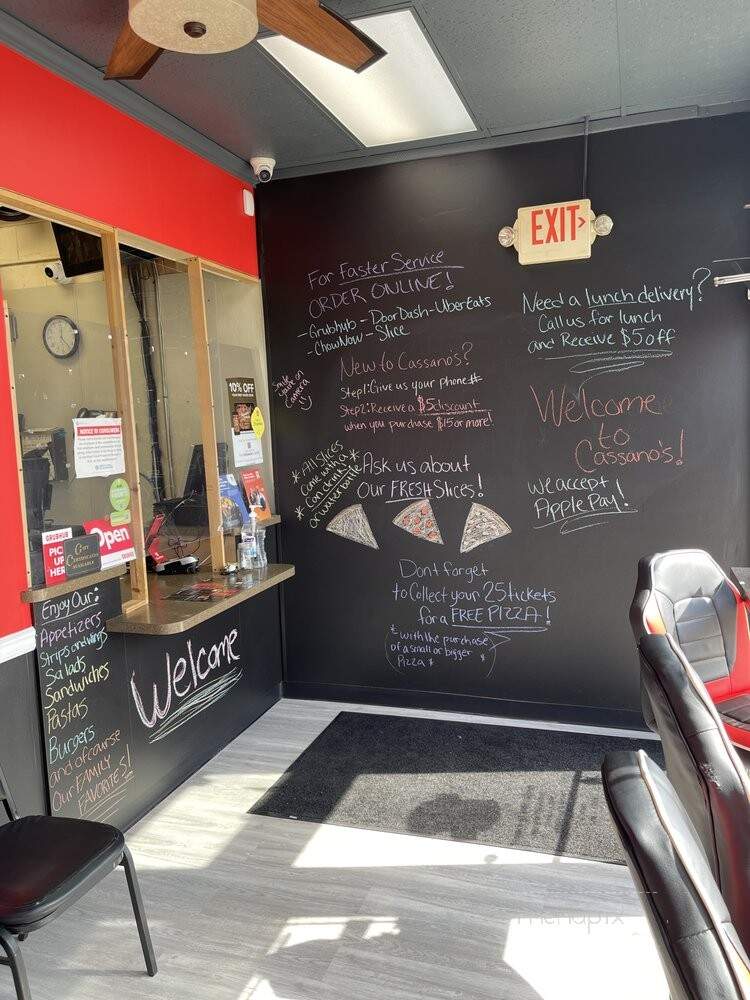 For Faster Service
ORDER ONLINE!
-Grubhub - DoorDash-UberEats
-ChowNow - Slice
Smile
you're on
Camera
New to Cassano's?
Step1: Give us your phone#
Step2: Receive a $5 discount
when you purchase $15 or more!
*All Slices
come with a
can drink
or water bottle*
Ask us about
Our FRESH Slices!
Don't forget
to Collect your 25 tickets
for a FREE PIZZA!
*with the purchase
of a small or bigger
Pizza*
EXIT
Need a lunch delivery?
Call us for lunch
and Receive $5 off
Welcome
to
Cassano's!
we accept
Apple Pay!
10% OFF
NOTICE TO CONSUMERS
GRUBHUB
PIC
UP
HER
Open
GIFT
CERTIFICATES
AVAILABLE
Enjoy Our:
Appetizers
Strips and wings
Salads
Sandwiches
Pastas
Burgers
and ofcourse
Our FAMILY
FAVORITES!
Welcome
menupix